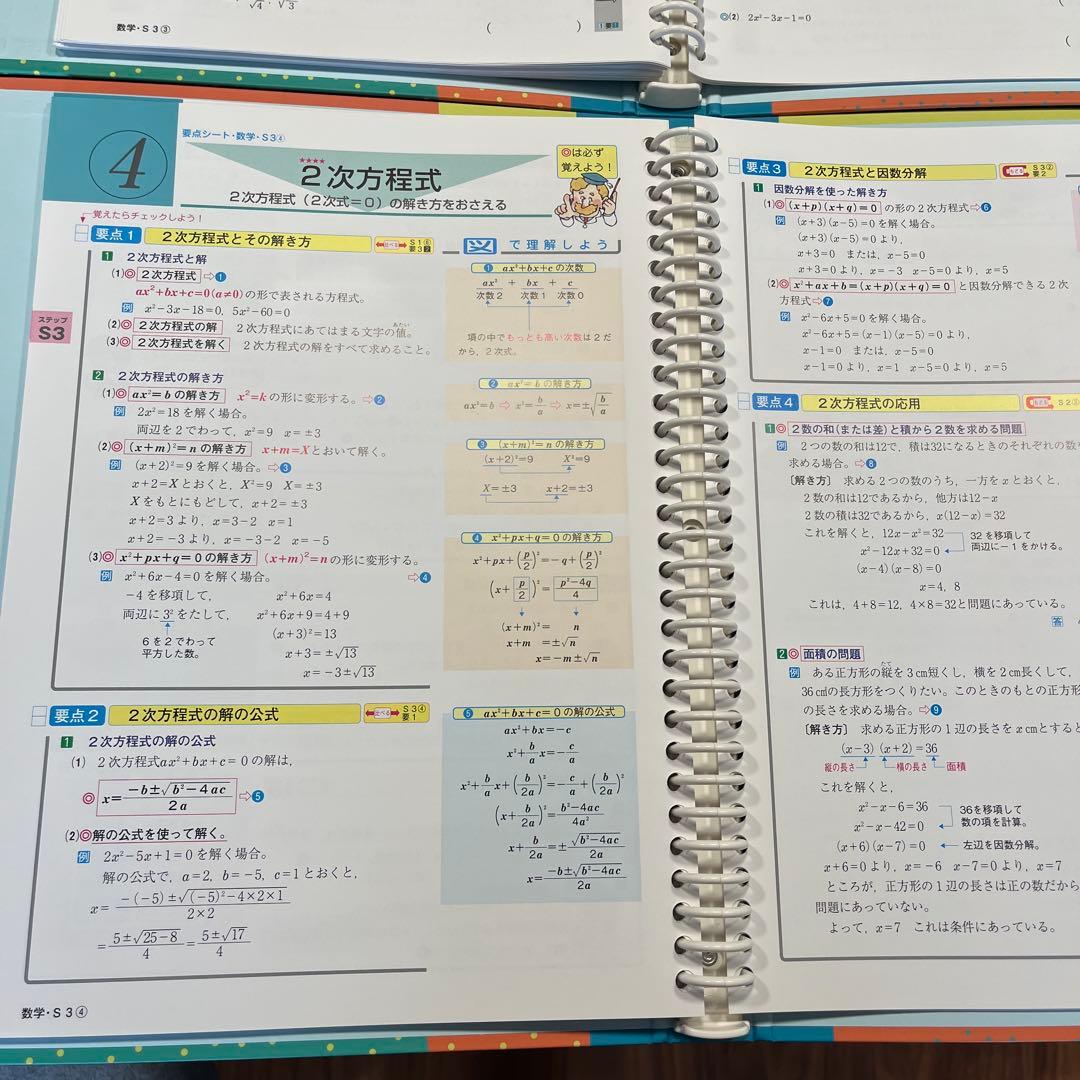 √4 , √3
数学・S 3③
( )
1 要1
◎(2) 2x²−3x−1=0
(
4
要点シート・数学・S3④
★★★★
2次方程式
2次方程式（2次式＝0）の解き方をおさえる
◎は必ず
覚えよう！
覚えたらチェックしよう！
ステップ
S3
要点1 2次方程式とその解き方 比べる S1⑥ 要32
1 2次方程式と解
(1)◎ 2次方程式 ⇨1
ax²+bx+c=0(a≠0)の形で表される方程式。
例 x²−3x−18=0, 5x²−60=0
(2)◎ 2次方程式の解 2次方程式にあてはまる文字の値。
あたい
(3)◎ 2次方程式を解く 2次方程式の解をすべて求めること。
2 2次方程式の解き方
(1)◎ ax²=bの解き方 x²=kの形に変形する。⇨2
例 2x²=18を解く場合。
両辺を2でわって, x²=9 x=±3
(2)◎ (x+m)²=nの解き方 x+m=Xとおいて解く。
例 (x+2)²=9を解く場合。⇨3
x+2=Xとおくと, X²=9 X=±3
Xをもとにもどして, x+2=±3
x+2=3より, x=3−2 x=1
x+2=−3より, x=−3−2 x=−5
(3)◎ x²+px+q=0の解き方 (x+m)²=nの形に変形する。
例 x²+6x−4=0を解く場合。 ⇨4
−4を移項して, x²+6x=4
両辺に3²をたして, x²+6x+9=4+9
6を2でわって
平方した数。
(x+3)²=13
x+3=±√13
x=−3±√13
要点2 2次方程式の解の公式 比べる S3④ 要1
1 2次方程式の解の公式
(1) 2次方程式ax²+bx+c=0の解は,
◎ x=(−b±√(b²−4ac))/2a ⇨5
(2)◎解の公式を使って解く。
例 2x²−5x+1=0を解く場合。
解の公式で, a=2, b=−5, c=1とおくと,
x=(−(−5)±√((−5)²−4×2×1))/(2×2)
=(5±√(25−8))/4=(5±√17)/4
数学・S 3④
図 で理解しよう
1 ax²+bx+cの次数
ax² + bx + c
次数2 次数1 次数0
項の中でもっとも高い次数は2だ
から, 2次式。
2 ax²=bの解き方
ax²=b ⇨ x²=b/a ⇨ x=±√(b/a)
3 (x+m)²=nの解き方
(x+2)²=9 X²=9
X=±3 x+2=±3
4 x²+px+q=0の解き方
x²+px+(p/2)²=−q+(p/2)²
(x+p/2)²=(p²−4q)/4
(x+m)²= n
x+m =±√n
x=−m±√n
5 ax²+bx+c=0の解の公式
ax²+bx=−c
x²+(b/a)x=−c/a
x²+(b/a)x+(b/2a)²=−c/a+(b/2a)²
(x+b/2a)²=(b²−4ac)/4a²
x+b/2a=±√(b²−4ac)/2a
x=(−b±√(b²−4ac))/2a
要点3 2次方程式と因数分解 もどる S3② 要2
1 因数分解を使った解き方
(1)◎ (x+p)(x+q)=0 の形の2次方程式⇨6
例 (x+3)(x−5)=0を解く場合。
(x+3)(x−5)=0より,
x+3=0 または, x−5=0
x+3=0より, x=−3 x−5=0より, x=5
(2)◎ x²+ax+b=(x+p)(x+q)=0 と因数分解できる2次
方程式⇨7
例 x²−6x+5=0を解く場合。
x²−6x+5=(x−1)(x−5)=0より,
x−1=0 または, x−5=0
x−1=0より, x=1 x−5=0より, x=5
要点4 2次方程式の応用 もどる S2③
1◎ 2数の和(または差)と積から2数を求める問題
例 2つの数の和は12で, 積は32になるときのそれぞれの数を
求める場合。⇨8
〔解き方〕 求める2つの数のうち, 一方をxとおくと,
2数の和は12であるから, 他方は12−x
2数の積は32であるから, x(12−x)=32
これを解くと, 12x−x²=32
x²−12x+32=0
32を移項して
両辺に−1をかける。
(x−4)(x−8)=0
x=4, 8
これは, 4+8=12, 4×8=32と問題にあっている。
答
2◎ 面積の問題
例 ある正方形の縦を3cm短くし, 横を2cm長くして,
たて
36cm²の長方形をつくりたい。このときのもとの正方形
の長さを求める場合。⇨9
〔解き方〕 求める正方形の1辺の長さをxcmとすると
(x−3) (x+2)=36
縦の長さ 横の長さ 面積
これを解くと,
x²−x−6=36
x²−x−42=0
36を移項して
数の項を計算。
(x+6)(x−7)=0 ← 左辺を因数分解。
x+6=0より, x=−6 x−7=0より, x=7
ところが, 正方形の1辺の長さは正の数だから
問題にあっていない。
よって, x=7 これは条件にあっている。